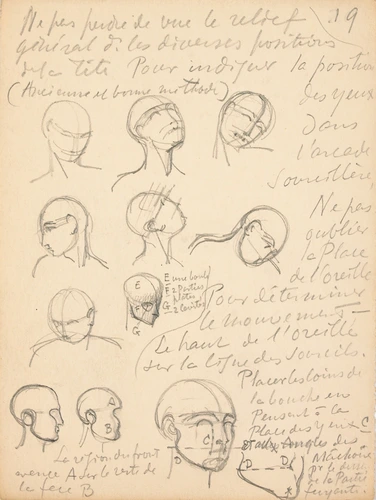 19
Ne pas perdre de vue le relief
général ds les diverses positions
de la tête Pour indiquer la position
(Ancienne et bonne méthode)
des yeux
dans
l'arcade
sourcilière
Ne pas
oublier
la Place
de l'oreille
Pour déterminer
le mouvement
Le haut de l'oreille
sur la ligne des sourcils.
E une boule
F 2 Parties
G
E
F
G
Placer les coins de
la bouche en
Pensant à la
Place des yeux C
et aux Angles des
Mâchoires
D D
A
B
C
D
La région du front
avance A sur le reste de
la face B